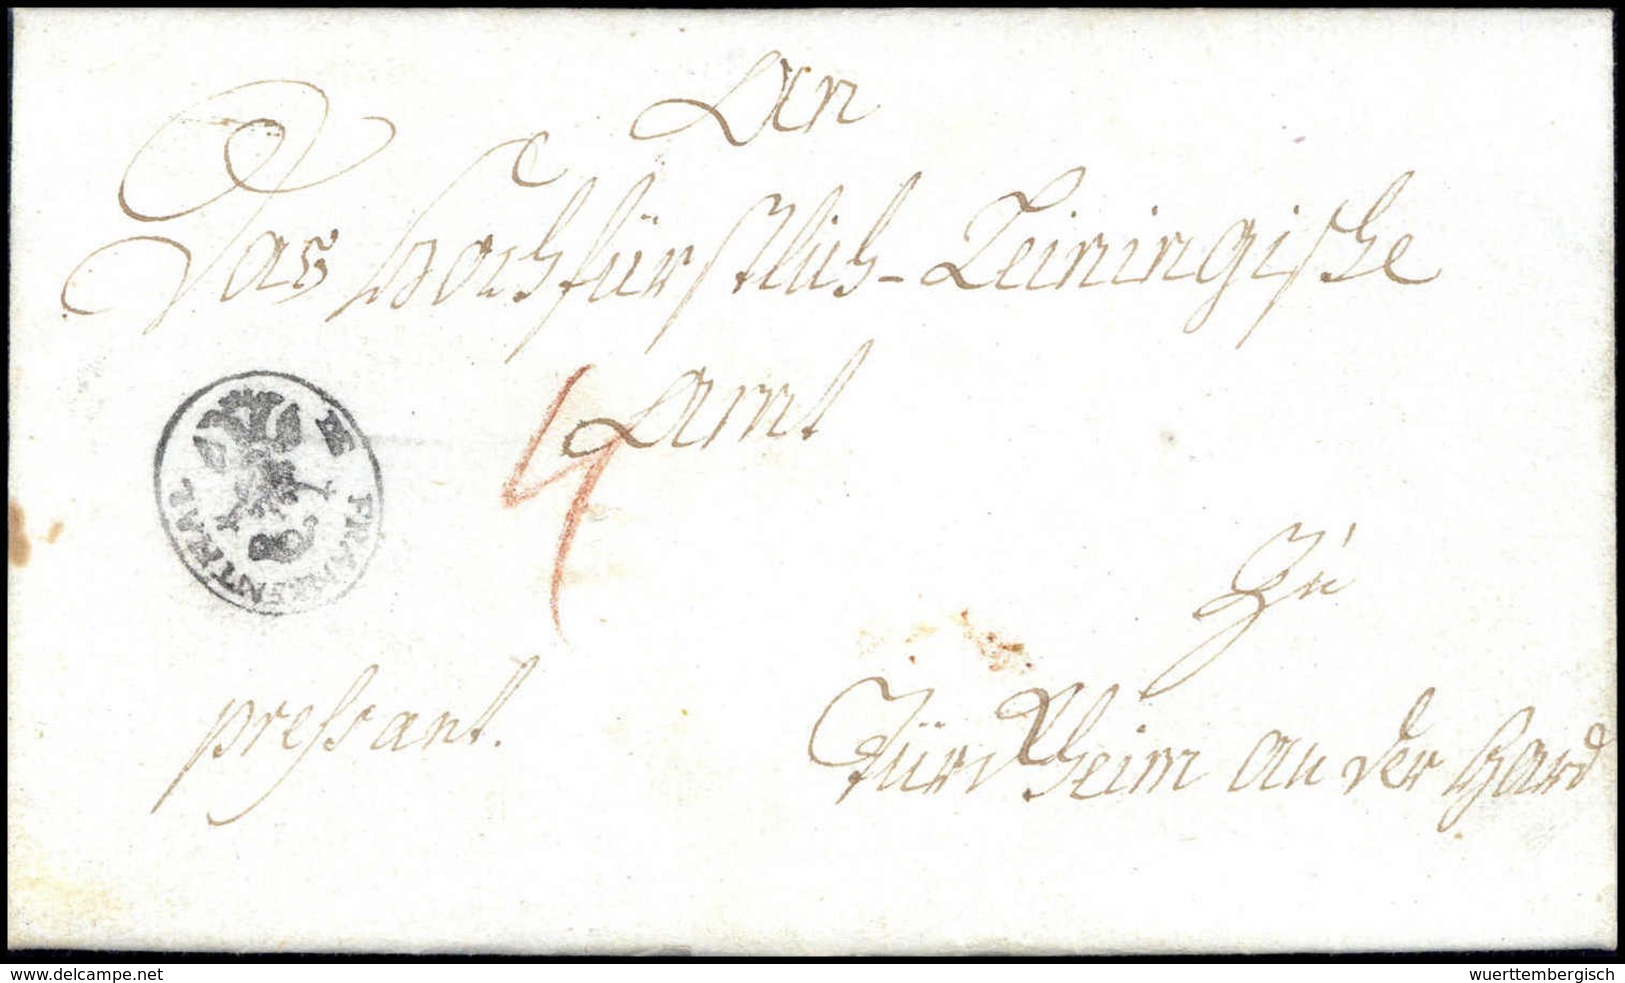 An
Das Hochfürstlich-Leiningische
Amt
DE FRANKENTHAL
4
Zu
pressant.
Dürckheim an der Hard
www.delcampe.net
wuerttembergisch